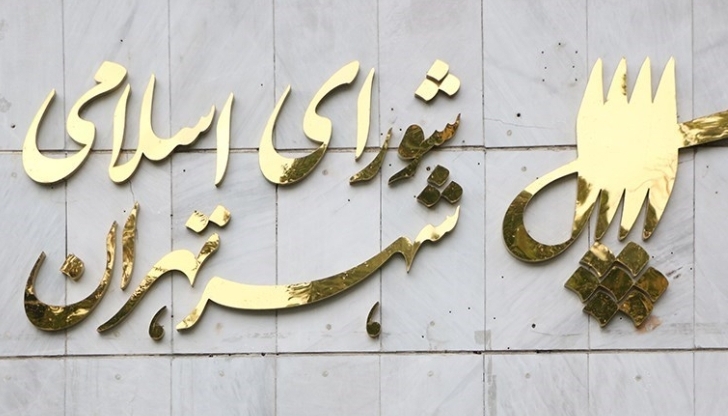 شورای اسلامی
شهر تهران